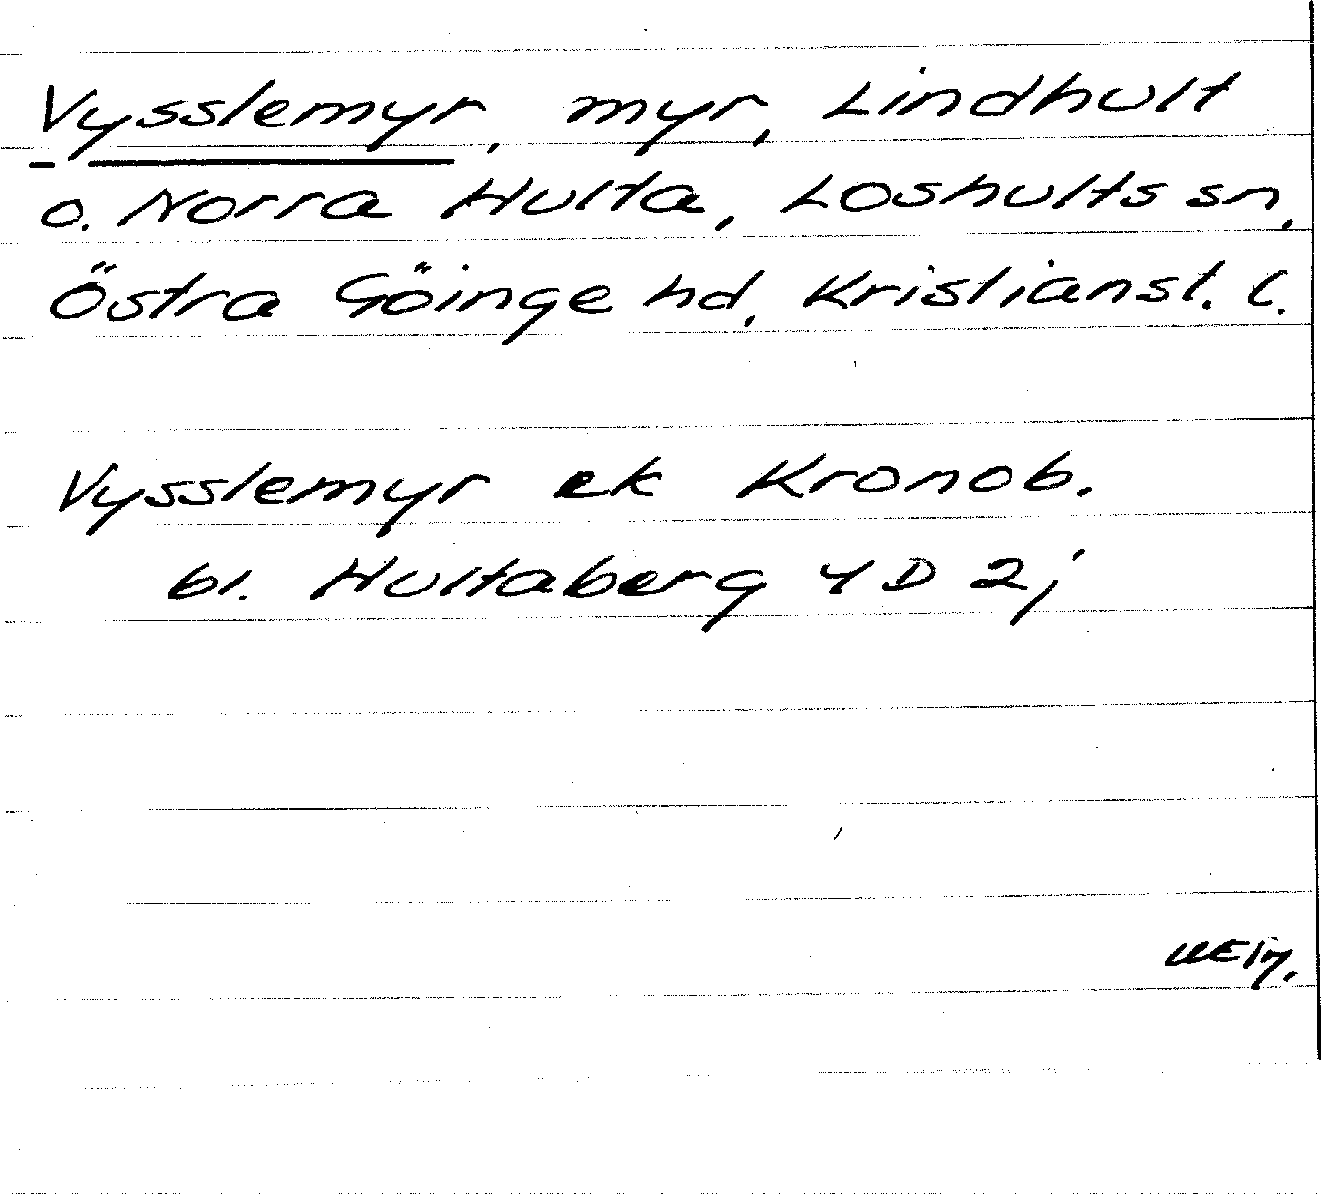 Vysslemyr, myr, Lindhult
o. Norra Hulta, Loshults sn,
Östra Göinge hd, Kristianst. l.
Vysslemyr ek Kronob.
bl. Hultaberg 4 D 2j